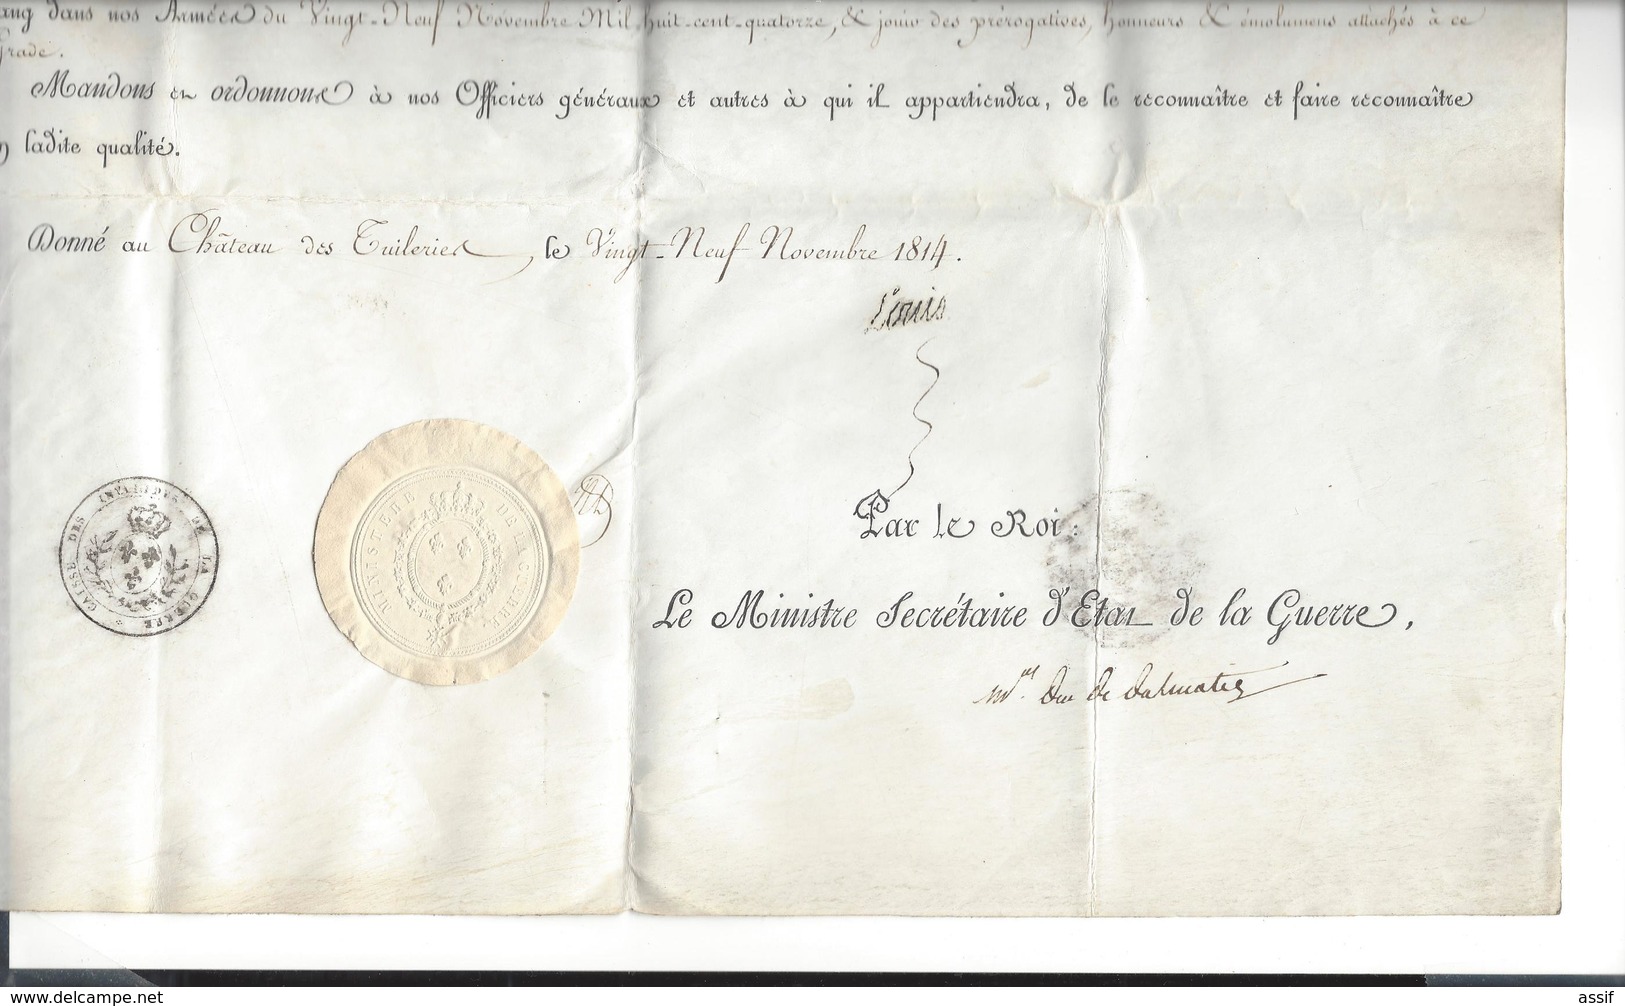 ang dans nos Armées du Vingt-Neuf Novembre Mil-huit-cent-quatorze, & jouir des prérogatives, honneurs & émolumens attachés à ce
Grade.
Mandons et ordonnons à nos Officiers généraux et autres à qui il appartiendra, de le reconnaître et faire reconnaître
ladite qualité.
Donné au Château des Tuileries, le Vingt-Neuf Novembre 1814.
Louis
Par le Roi:
Le Ministre Secrétaire d'Etat de la Guerre,
Mal Duc de Dalmatie
CAISSE DES INVALIDES DE LA GUERRE
MINISTERE DE LA GUERRE
www.delcampe.net
assif